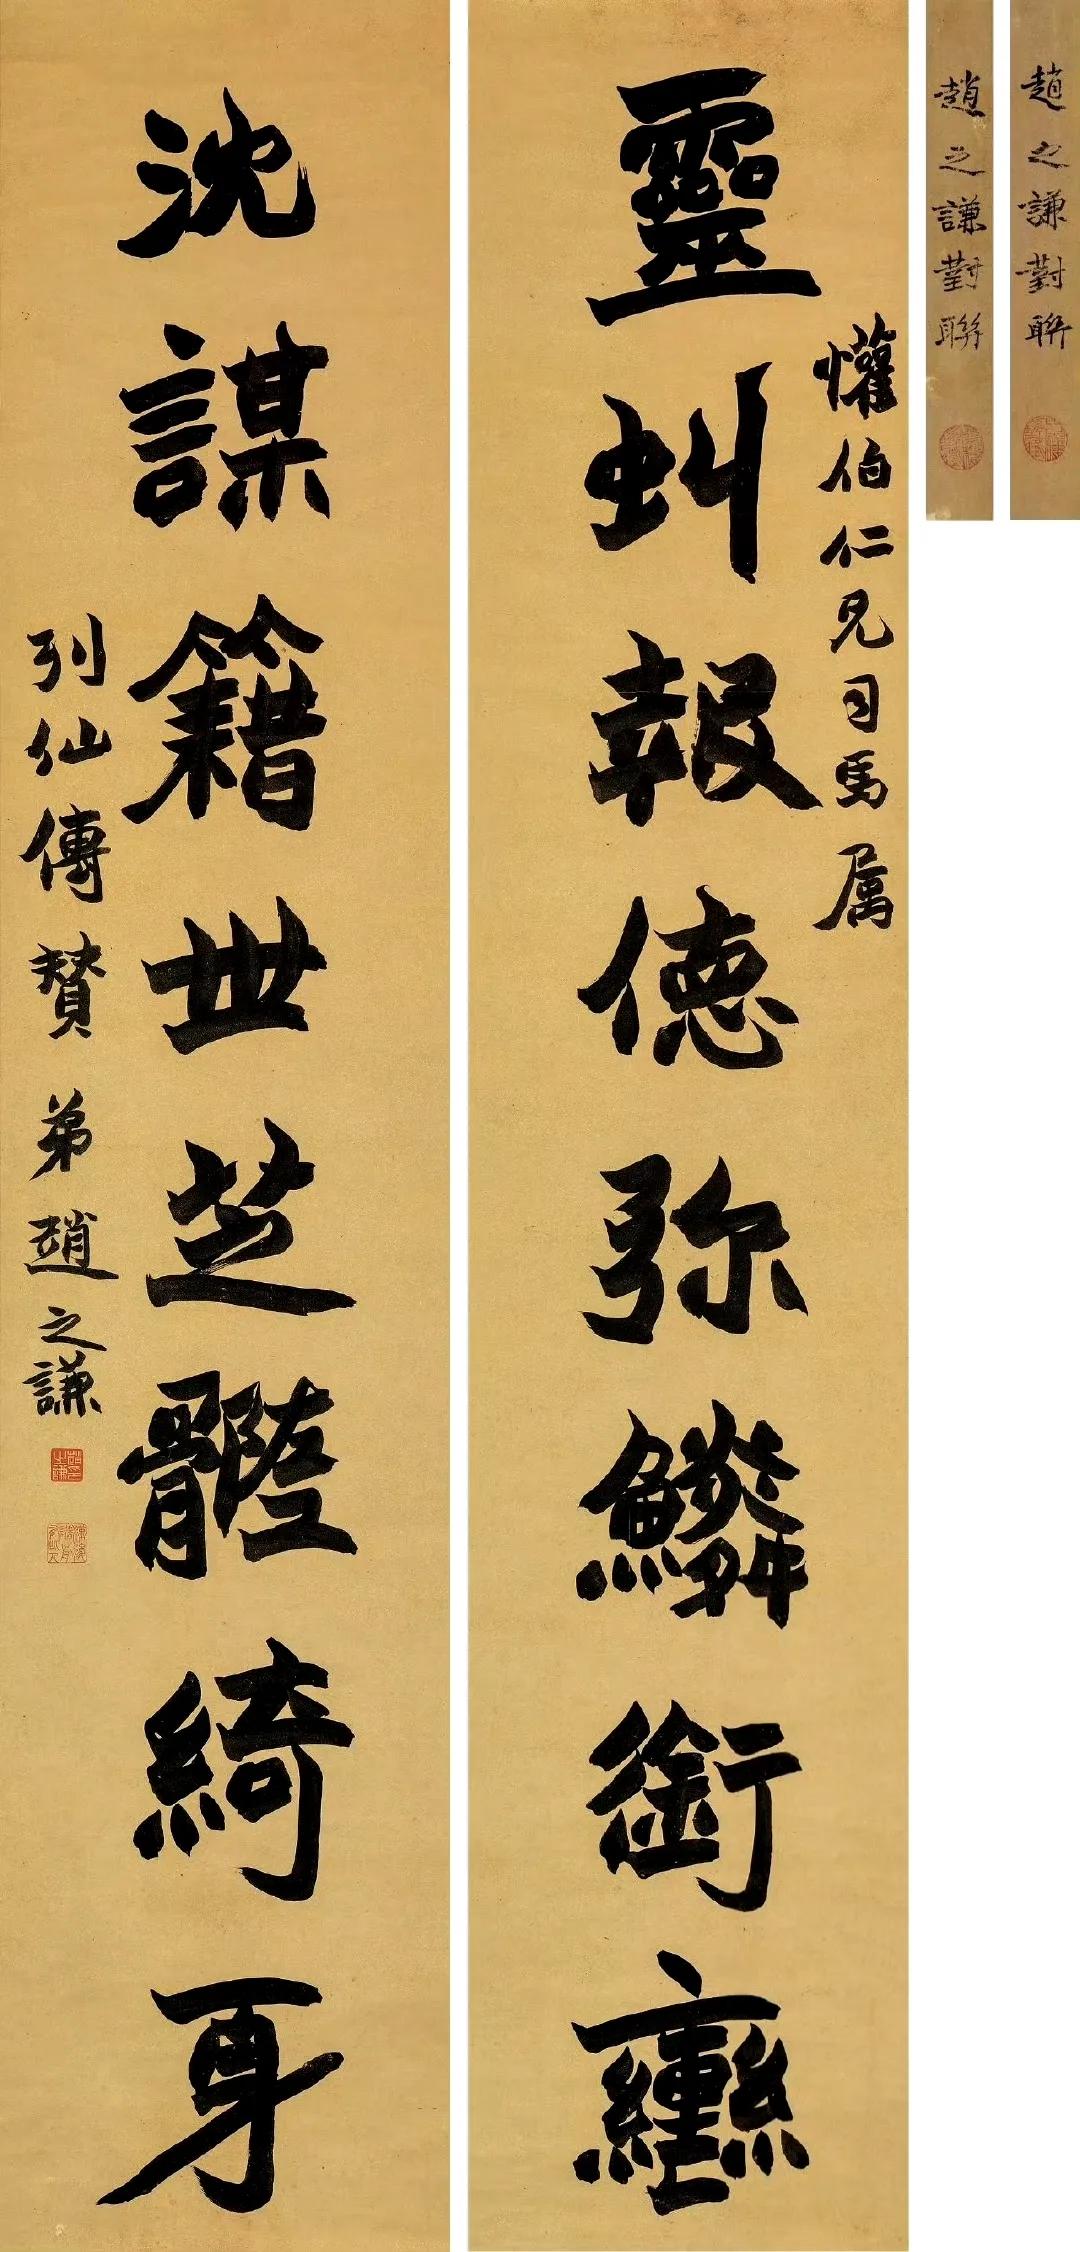 趙之謙對聯
趙之謙對聯
懽伯仁兄司馬属
靈虯報德弥鱗銜轡
沈謀籍世芝髓綺身
列仙傳賛 弟趙之謙